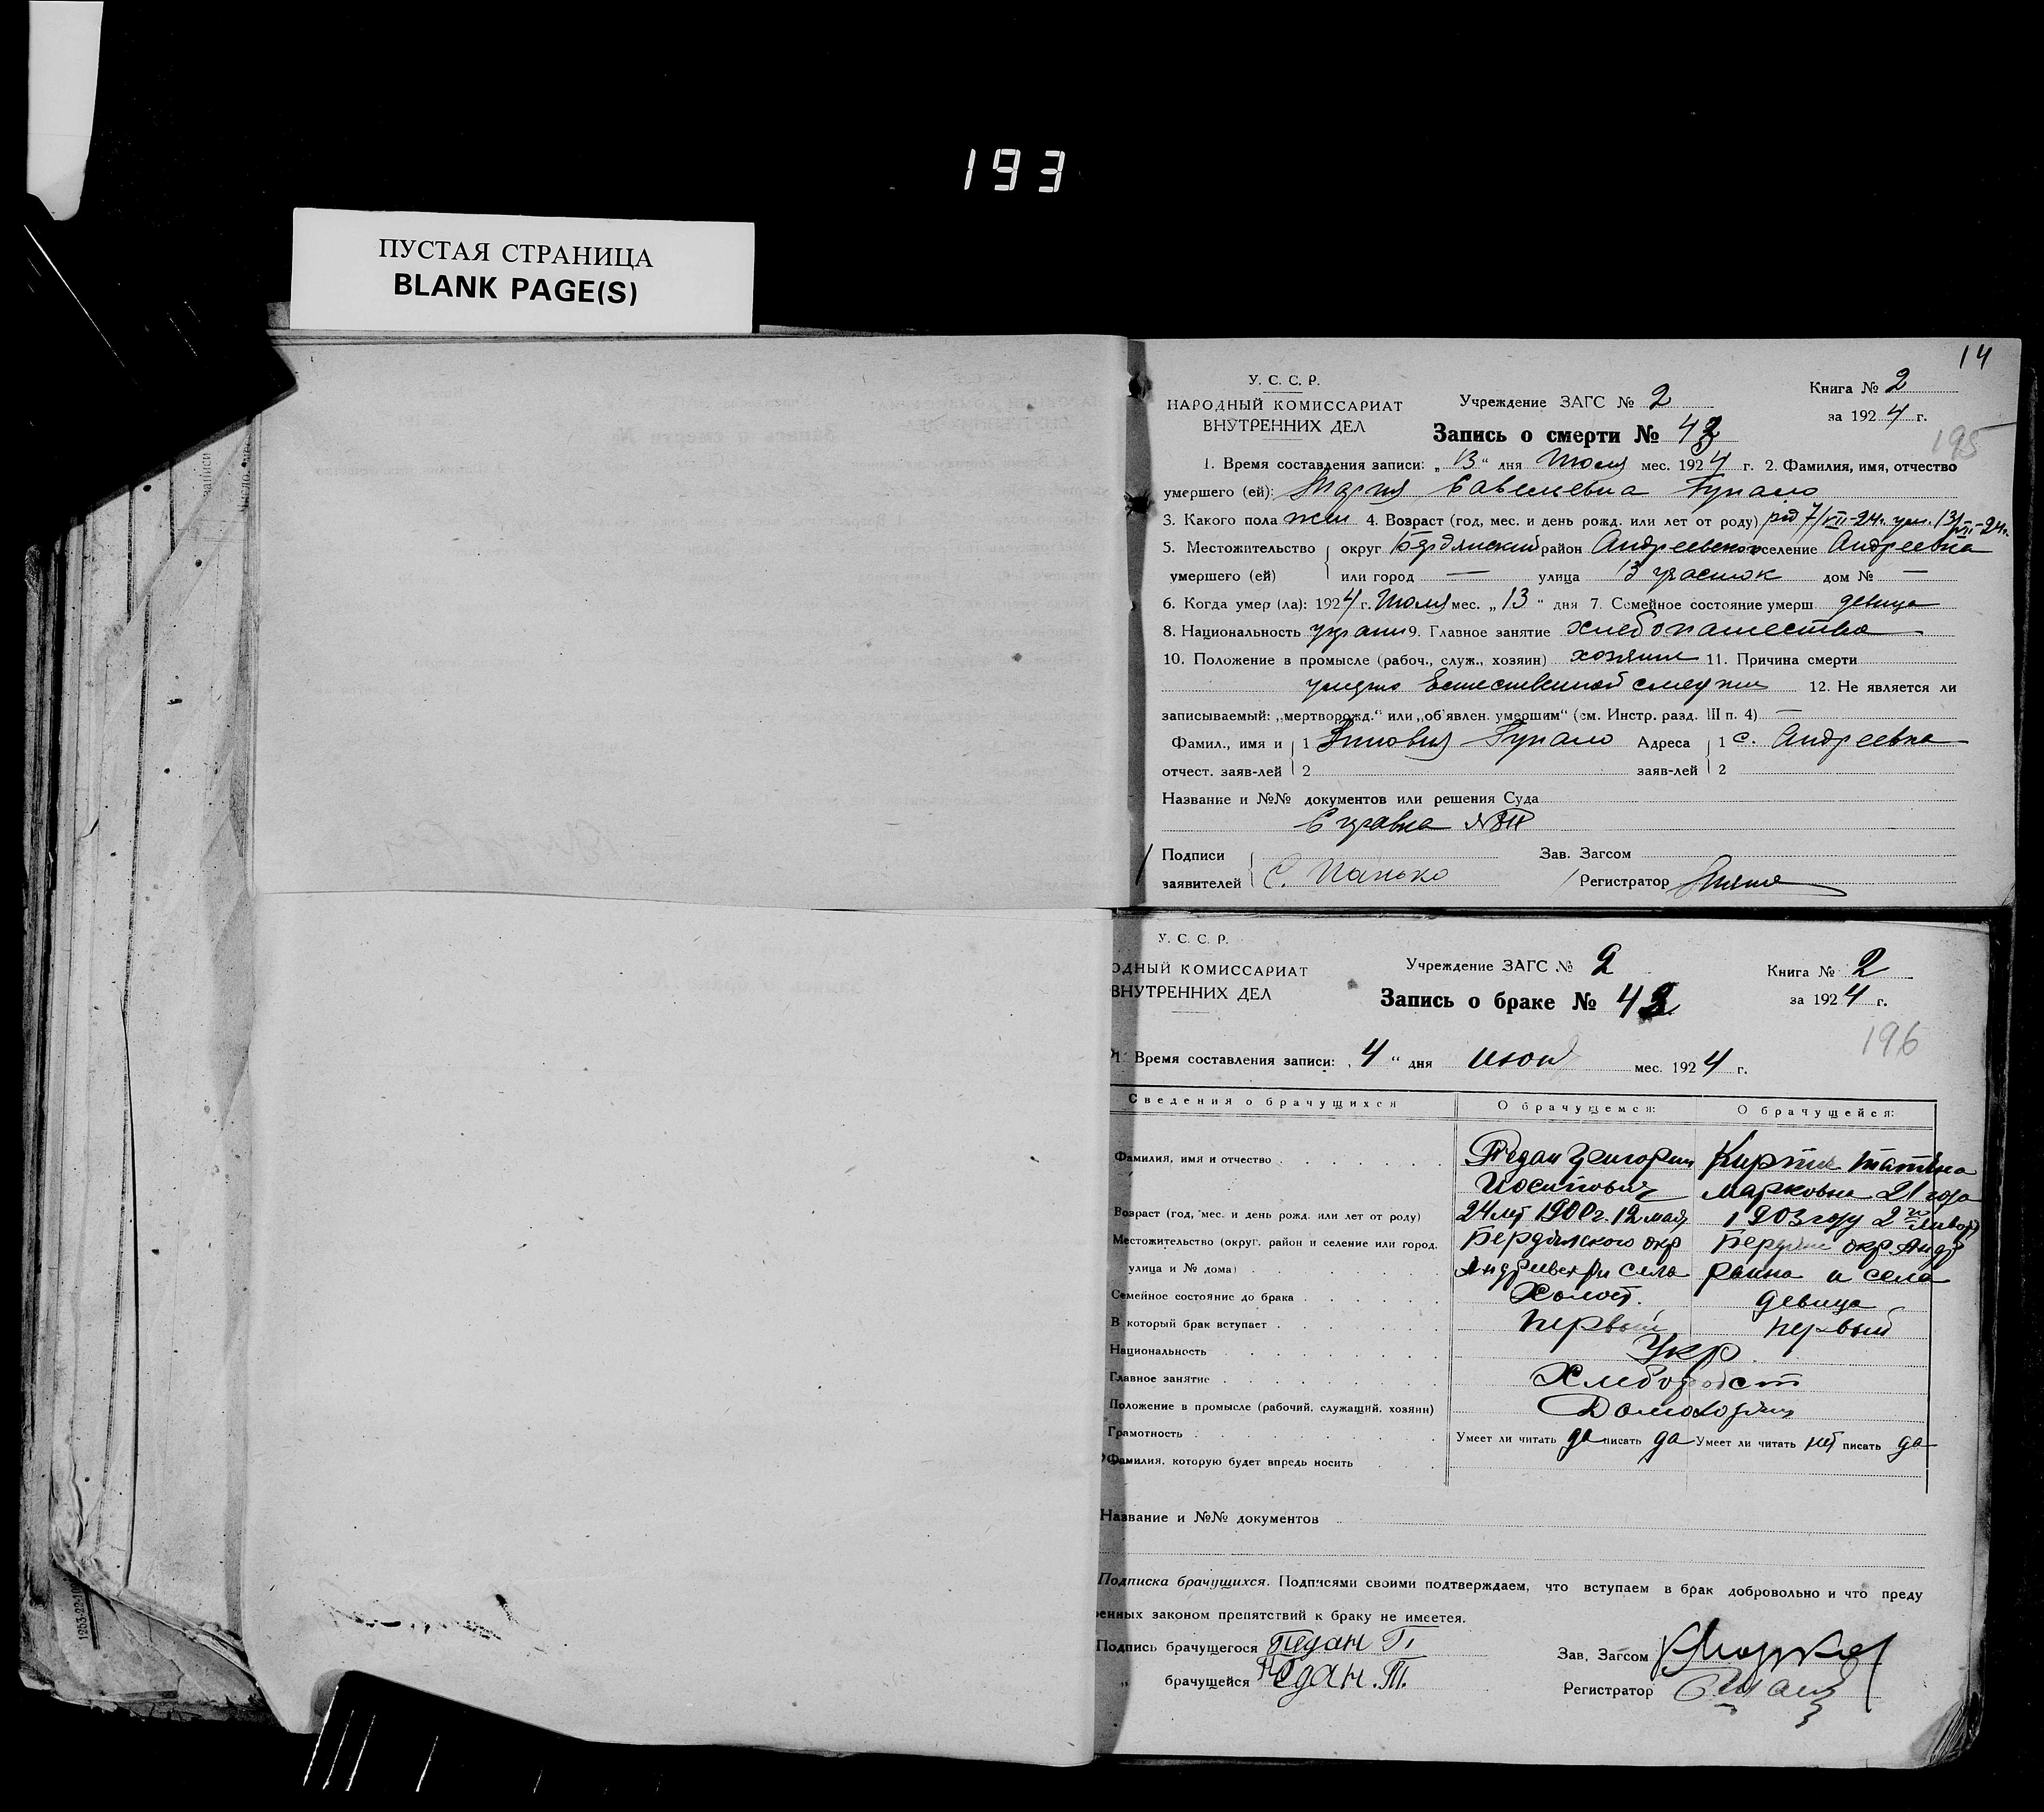 193
ПУСТАЯ СТРАНИЦА
BLANK PAGE(S)
14
У. С. С. Р.
НАРОДНЫЙ КОМИССАРИАТ
ВНУТРЕННИХ ДЕЛ
Учреждение ЗАГС № 2
Книга № 2
за 1924 г.
Запись о смерти № 42
195
1. Время составления записи: „13“ дня Июля мес. 1924 г. 2. Фамилия, имя, отчество
умершего (ей): Мария Савельевна
3. Какого пола жен 4. Возраст (год, мес. и день рожд. или лет от роду) род 7/VII-24г. ум. 13/VII-24г.
5. Местожительство округ Бердянский район Андреевского селение Андреевка
умершего (ей) или город — улица 3 участок дом № —
6. Когда умер (ла): 1924 г. Июля мес. „13“ дня 7. Семейное состояние умерш. девица
8. Национальность украин 9. Главное занятие хлебопашество
10. Положение в промысле (рабоч., служ., хозяин) хозяин 11. Причина смерти
умерла Естественной смерти 12. Не является ли
записываемый: „мертворожд.“ или „об'явлен. умершим“ (см. Инстр. разд. III п. 4) —
Фамил., имя и 1 Зиновия Адреса 1 с. Андреевка
отчест. заяв-лей 2 заяв-лей 2
Название и №№ документов или решения Суда
Справка №
Подписи Зав. Загсом
заявителей С. Панько Регистратор
У. С. С. Р.
ОДНЫЙ КОМИССАРИАТ
ВНУТРЕННИХ ДЕЛ
Учреждение ЗАГС № 2
Книга № 2
за 1924 г.
Запись о браке № 43
196
1. Время составления записи: „4“ дня июня мес. 1924 г.
Сведения о брачущихся О брачущемся: О брачущейся:
Фамилия, имя и отчество Педан Григорий Татьяна
Иосипович Марковна 21 года
Возраст (год, мес. и день рожд. или лет от роду) 24 лет 1900 г. 12 мая 1903 году 2го января
Местожительство (округ, район и селение или город, Бердянского окр Бердян окр. Андр
улица и № дома) Андреевск рн села раина и села
Семейное состояние до брака Холост. девица
В который брак вступает первый первый
Национальность Укр
Главное занятие
Положение в промысле (рабочий, служащий, хозяин)
Грамотность Умеет ли читать да писать да Умеет ли читать нет писать да
Фамилия, которую будет впредь носить
Название и №№ документов
Подписка брачущихся. Подписями своими подтверждаем, что вступаем в брак добровольно и что преду
енных законом препятствий к браку не имеется.
Подпись брачущегося Педан Г. Зав. Загсом
„ брачущейся Педан. Т. Регистратор